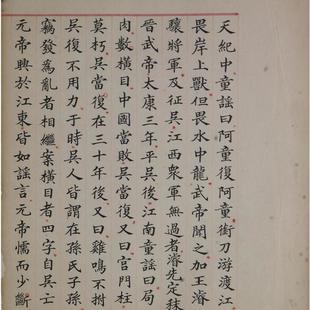 天紀中童謡曰阿童復阿童銜刀游渡江不
畏岸上獸但畏水中龍武帝聞之加王濬龍
驤將軍及征吳江西衆軍無過者濬先定秣陵
晉武帝太康三年平吳後江南童謡曰局縮
肉數橫目中國當敗吳當復又曰宮門柱且
莫朽吳當復在三十年後又曰雞鳴不拊翼
吳復不用力于時吳人皆謂在孫氏子孫故
竊發為亂者相繼案橫目者四字自吳亡至
元帝興於江東皆如謡言元帝懦而少斷